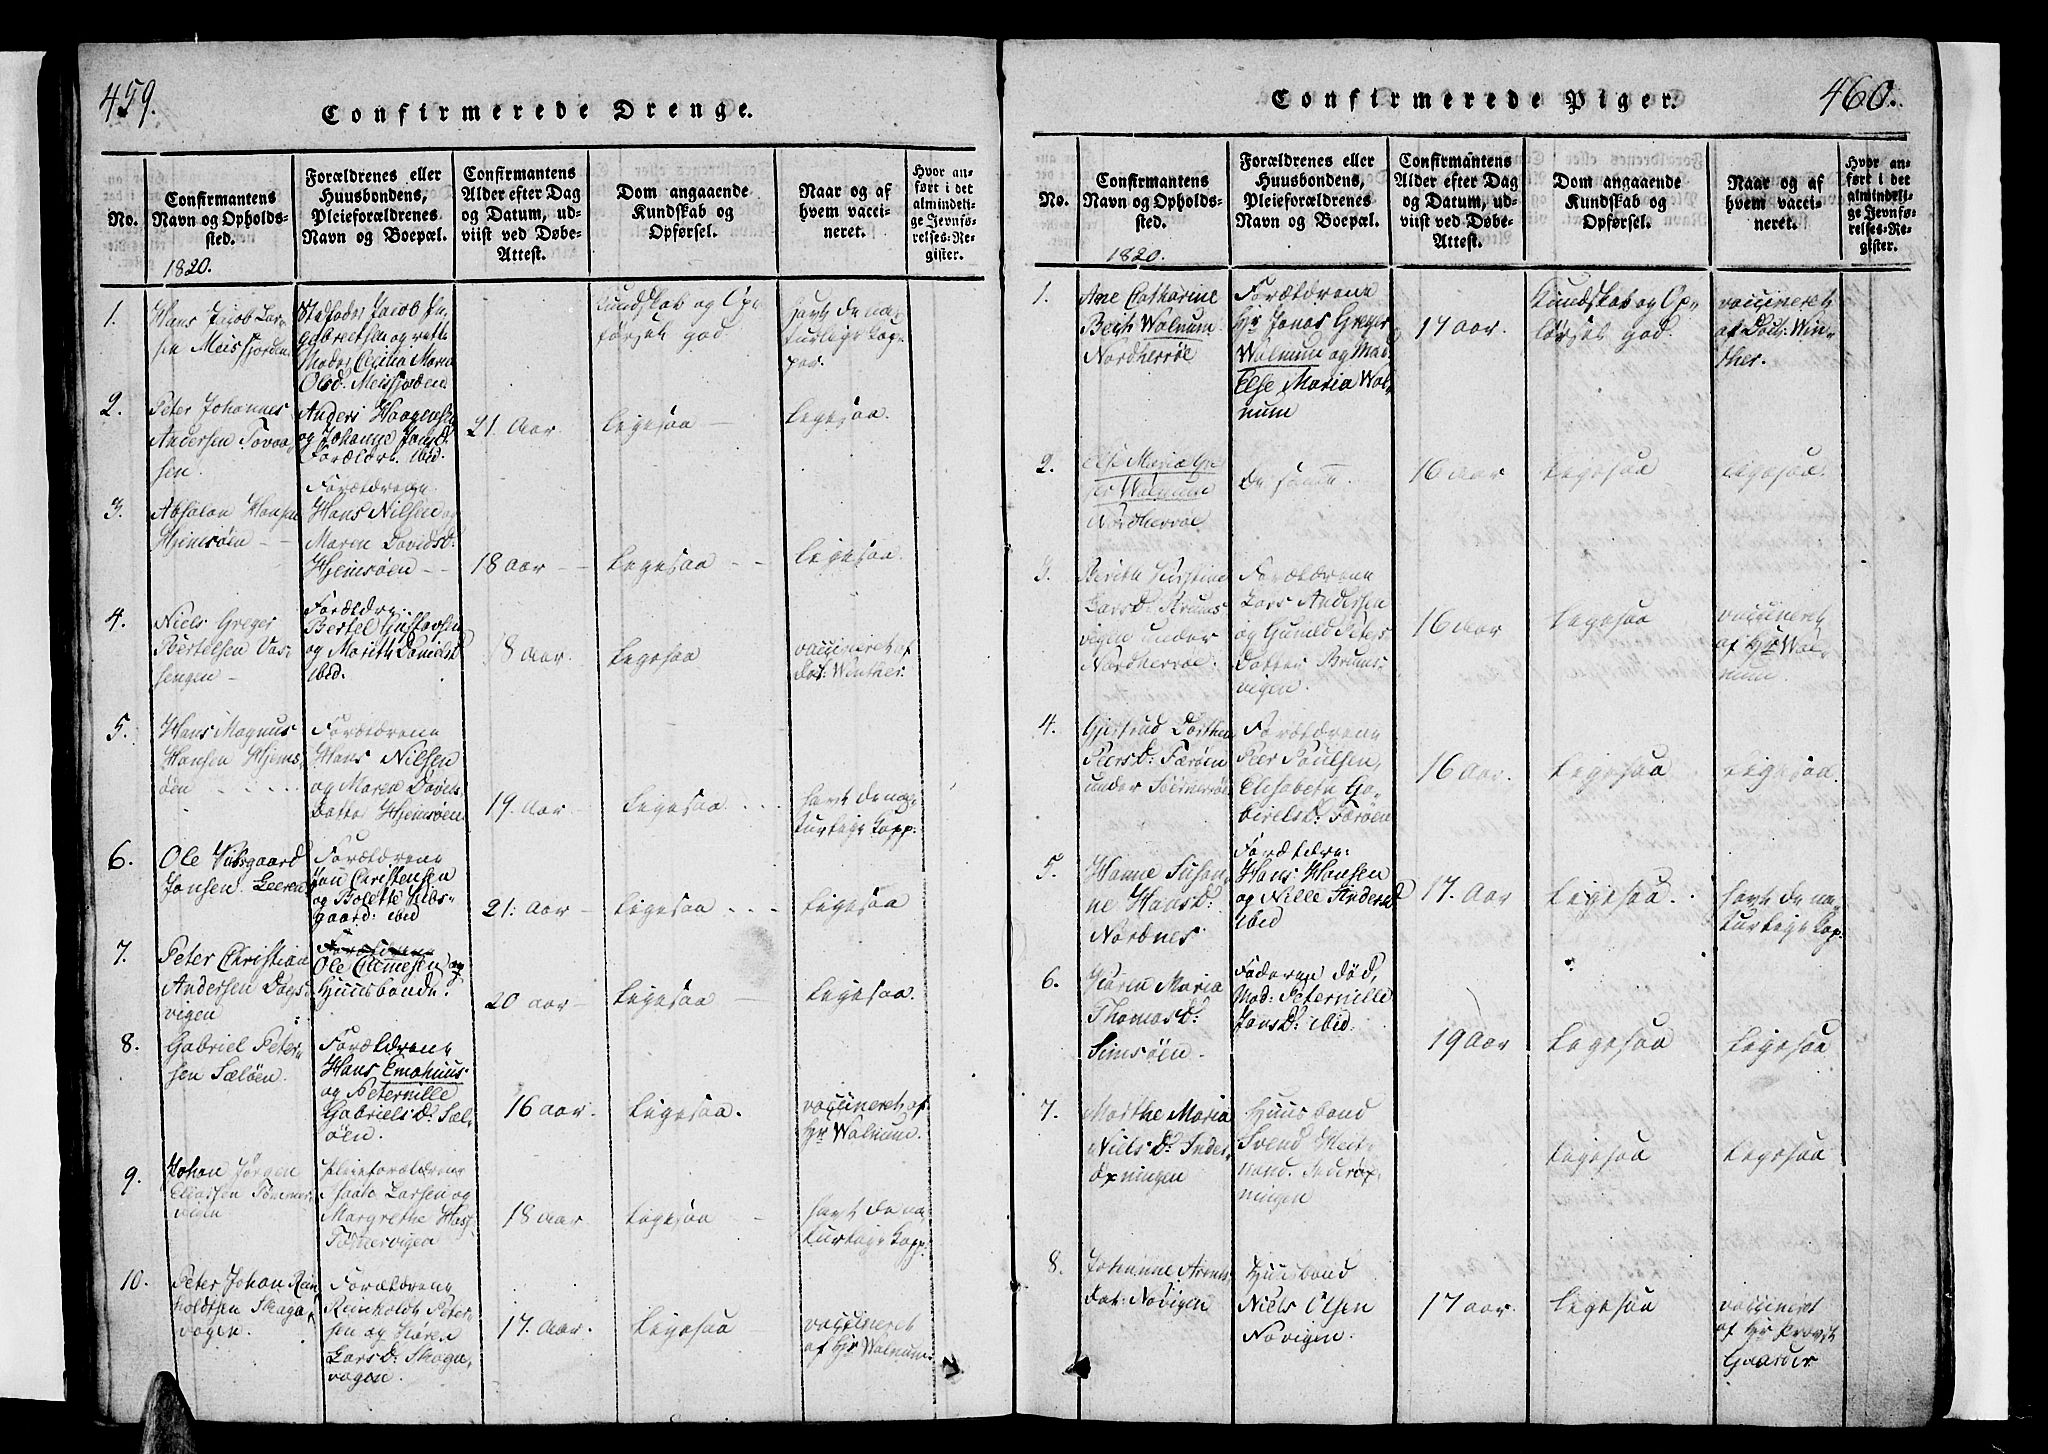 459.
Confirmerede Drenge.
No.
Confirmantens
Navn og Opholds-
sted.
Forældrenes eller
Huusbondens,
Pleieforældrenes
Navn og Boepæl.
Confirmantens
Alder efter Dag
og Datum, ud-
viist ved Døbe-
Attest.
Dom angaaende
Kundskab og
Opførsel.
Naar og af
hvem vacci-
neret.
Hvor an-
ført i det
almindeli-
ge Jevnfø-
relses-Re-
gister.
1820.
1.
Hans Jacob Lar-
sen Meisfjorden
Stedfader Jacob In-
gebrectsen og rette
Moder Cecilia Maria
Olsd. Meisfjorden
Kundskab og Op-
førsel god
havt de na-
turlige Kop-
per.
2.
Peter Johannes
Andersen Tovaa-
sen.
Anders Haagensen
og Johanne Jansd:
Forældre ibid.
21 Aar
ligesaa
ligesaa.
3.
Absalon Hansen
Hjemsøen
Forældrene
Hans Nilsen og
Maren Davidsd:
Hjemsøen
18 aar
ligesaa
ligesaa.
4.
Niels Greger
Bertelsen
Forældre:
Bertel Gustavsen
og Marith Danielsd
ibid.
18 aar.
ligesaa
vaccineret af
Doct: Winther.
5.
Hans Magnus
Hansen Hjems-
øen
Forældrene
Hans Nilsen
og Maren Davids
Datter Hjemsøen.
19 aar
ligesaa
havt de na-
turlige Kopp:
6.
Ole Hildsgaard
Jansen Leeren
Forældrene
Jan Christensen
og Bolette Hilds-
gaard: ibid
21: aar
ligesaa
ligesaa
7.
Peter Christian
Andersen Dags-
vigen
Forældrene
Ole Clemesen og
Huusbonde.
20 aar
ligesaa
ligesaa.
8.
Gabriel Peter
sen Sæløen.
Forældrene
Hans Emahuus
og Peternille
Gabrielsd: Sæl-
øen.
16 aar.
ligesaa.
vaccineret af
Hr Walnum.
9.
Johan Jørgen
Eliassen Tømmer-
vigen
Pleieforældrene
Larsen og
Margrethe
Tømervigen
18 aar
ligesaa
havt de na-
turlige Kopp:
10.
Peter Johan Rein-
holdtsen Skaga-
vogen.
Forældrene
Reinholdt Peter-
sen og Karen
Larsd: Skaga-
vogen.
17. aar.
ligesaa
vaccineret
af Hr Walnum.
460.
Confirmerede Piger.
No.
Confirmantens
Navn og Opholds-
sted.
Forældrenes eller
Huusbondens,
Pleieforældrenes
Navn og Boepæl.
Confirmantens
Alder efter Dag
og Datum, ud-
viist ved Døbe-
Attest.
Dom angaaende
Kundskab og
Opførsel.
Naar og af
hvem vacci-
neret.
Hvor an-
ført i det
almindeli-
ge Jevnfø-
relses-Re-
gister.
1820.
1.
Ane Catharine
Bech Walnum
Nordherrøe
Forældrene
Hr Jonas Greger
Walnum og Mad.
Else Maria Wal-
num
17 aar.
Kundskab og Op-
førsel god.
vaccineret
af Doct: Win-
ther.
2.
Else Maria
Walnum
Nordherrøe
De samme.
16 aar
ligesaa
ligesaa.
3.
Berith Kirstine
Larsd: Bruns
vigen under
Nordherrøe.
Forældrene
Lars Andersen
og Gunild Peters
Datter Bruns-
vigen.
16 aar
ligesaa
vaccineret
af Hr Wal-
num.
4.
Gjertrud Dorthea
Peersd: Færøen
under Sørherrøe
Forældrene
Peer Poulsen,
Elisabeth Ga-
brielsd: Færøen
16 aar.
ligesaa
ligesaa.
5.
Hanne Susan-
ne Hansd:
Nordnes
Forældre:
Hans Hansen
og Nille Andersd
ibid
17. aar
ligesaa.
havt de na-
turlige Kop.
6.
Karen Maria
Thomasd:
Simsøen.
Faderen død,
Mod: Peternille
Jansd: ibid.
19 aar
ligesaa
ligesaa
7.
Marthe Maria
Nielsd: Inder-
øxningen
Huusbond
Svend
Inderøx-
ningen
ligesaa
ligesaa
8.
Johanne Arens
dat: Novigen
Huusbond
Niels Olsen
Novigen.
17 aar.
ligesaa
vaccineret
af Hr Provst
Gaarder